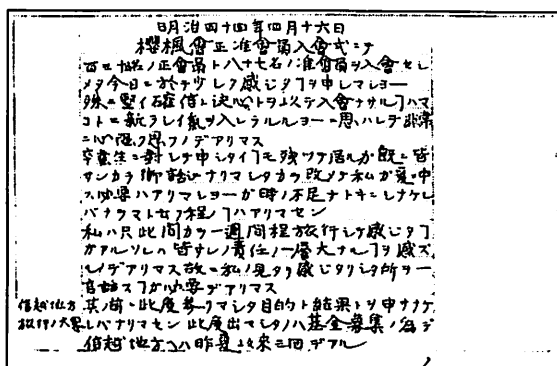 明治四十四年四月十六日
櫻楓會正准會員入會式ニテ
百二十 名ノ正會員ト八十七名ノ准會員ヲ入會セシ
メタ今日ニ於テ少シク感ジタヿヲ申シマショー
殊ニ堅イ確信ト決心トヲ以テ入會ナサルヿハマ
コトニ新ラシイ氣ヲ入レラルルヨーニ思ハレテ非常
ニ心强ク思フノデアリマス
卒業生ニ對シテ申シタイヿモ殘ッテ居ルガ既ニ皆
サンカラ御話ニナリマシタカラ改メテ私ガ 申
ス必要ハアリマショーガ時ノ不足ナトキニシナケレ
バナラマト云フ程ノヿハアリマセン
私ハ只此間カラ一週間程旅行シテ感ジタヿ
ガアルソレハ皆サンノ責任ノ一層大ナルヿヲ感ズ
ルノデアリマス故ニ私ノ見タリ感ジタリシタ所ヲ一
言話スヿガ必要デアリマス
信越地方
旅行ノ大要
其前ニ此度參リマシタ目的ト結果トヲ申サナケ
レバナリマセン 此度出マシタノハ基金募集ノ爲デ
信越地方ヘハ昨夏以來二回デアル